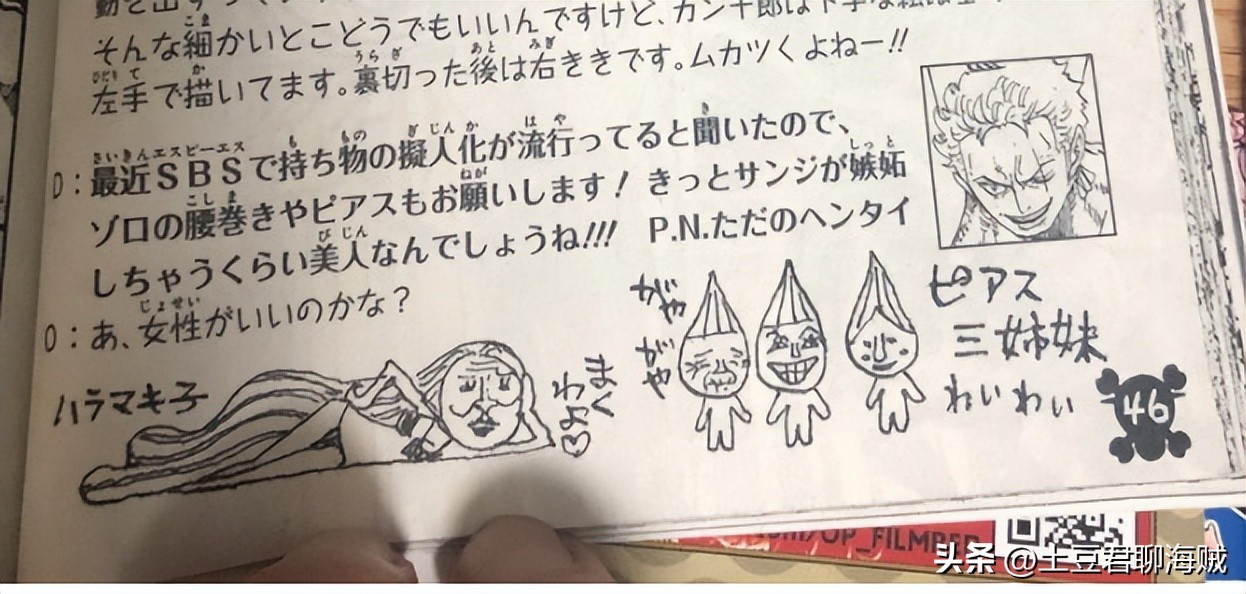 そんな細かいとこどうでもいいんですけど、カン十郎は下手な絵は
左手で描いてます。裏切った後は右ききです。ムカツくよねー!!
D：最近SBSで持ち物の擬人化が流行ってると聞いたので、
ゾロの腰巻きやピアスもお願いします！きっとサンジが嫉妬
しちゃうくらい美人なんでしょうね!!! P.N.ただのヘンタイ
O：あ、女性がいいのかな？
ハラマキ子
まく
わよ♡
がや
がや
ピアス
三姉妹
わいわい
46
OP_FILMRED
头条 @土豆君聊海贼